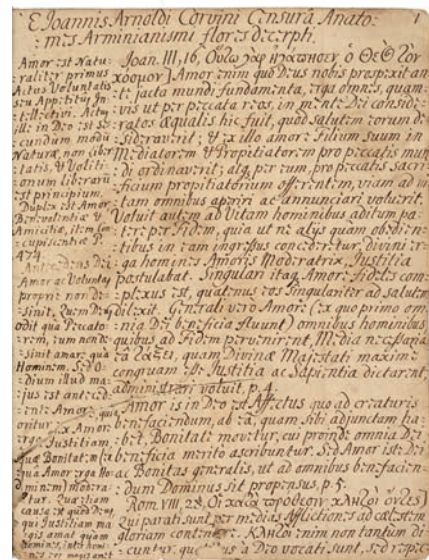 1
E Joannis Arnoldi Corvini Censurâ Anato-
mes Arminianismi flores decerpti.
Amor est Natu-
raliter primus
Actus Voluntatis
seu Appetitus In-
tellectivi. Actus
ille in Deo est se-
cundum modum
Naturæ, non liber-
tatis, & Voliti-
onum liberarum
est principium.
Duplex est Amor
Benevolentiæ &
Amicitiæ, item Con-
cupiscentiæ P.
474.
Antecedens Dei
Amor ac Voluntas
propriè non de-
sinit. Quem Deus
odit quà Peccato-
rem, eum non de-
sinit amare quà
Hominem. Sed O-
dium illud ma-
jus est antece-
dente Amore, quia
oritur ex Amore
erga Justitiam,
quâ Bonitatem (ex
quâ Amor erga Ho-
minem) modera-
tur. Quæ etiam
causa est quod Deus,
qui Justitiam ma-
gis amat quam
hominem,
Joan. III, 16, Οὕτω γὰρ ἠγάπησεν ὁ Θεὸς τὸν
κόσμον] Amor enim quo Deus nobis prospexit an-
te jacta mundi fundamenta, erga omnes, quam-
vis ut per peccata reos, in mente Dei conside-
ratos æqualis hic fuit, quod salutem eorum de-
sideraverit; & ex illo amore Filium suum in
Mediatorem & Propitiatorem pro peccatis mun-
di ordinaverit; atque per eum, pro peccatis sacri-
ficium propitiatorium offerentem, viam ad vi-
tam omnibus aperiri ac annunciari voluerit.
Voluit autem ad Vitam hominibus aditum pa-
tere per Fidem, quia ut ne alijs quam obedien-
tibus in eam ingressus concederetur, divini er-
ga homines Amoris Moderatrix, Justitia
postulabat. Singulari itaque Amore fideles com-
plexus est, quatenus eos singulariter ad salutem
dilexit. Generali vero Amore (ex quo primo om-
nia Dei beneficia fluunt) omnibus hominibus,
quibus ad Fidem pervenirent, Media necessaria
eâ quam Divinæ Majestati maxime
congruam esse Justitia ac Sapientia dictarent,
administrari voluit, p. 4.
Amor is in Deo est Affectus quo ad creaturis
benefaciendum, ab eâ, quam sibi adjunctam ha-
bet, Bonitate movetur, cui proinde omnia Dei
beneficia merito ascribuntur. Sed Amor iste Dei
ac Bonitas generalis, ut ad omnibus benefacien-
dum Dominus sit propensus, p. 5.
Rom VIII, 28, Οἱ κατὰ πρόθεσιν κλητοὶ ὄντες]
Qui parati sunt per medias Afflictiones ad cælestem
gloriam contendere. Κλητοὶ enim non tantum di-
cuntur, qui a Deo vocati sunt, sed